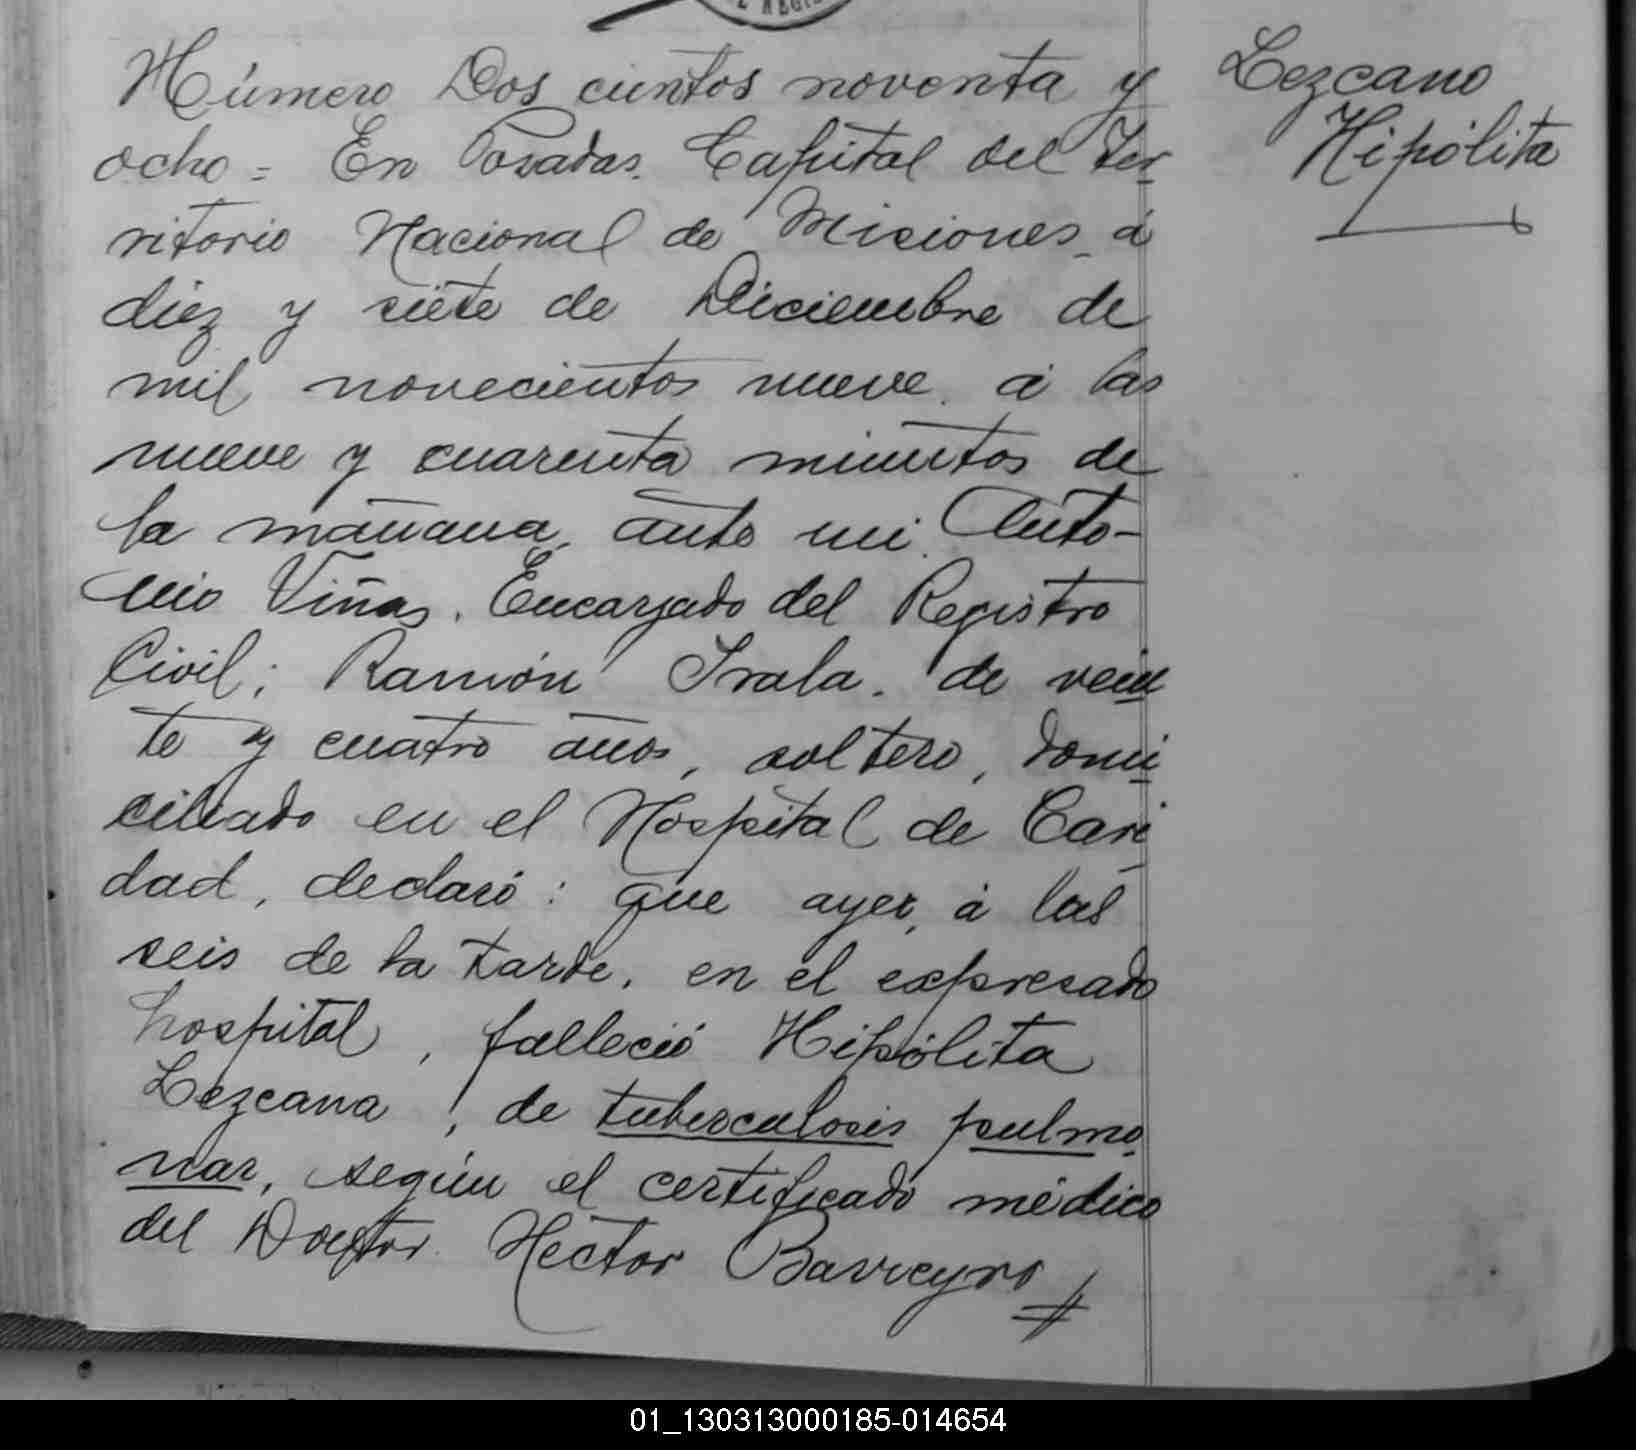 Número Dos cientos noventa y
ocho = En Posadas. Capital del Ter
ritorio Nacional de Misiones á
diez y siete de Diciembre de
mil novecientos nueve. á las
nueve y cuarenta minutos de
la mañana, ante mi. Anto-
nio Viñas. Encargado del Registro
Civil; Ramón Irala. de vein
te y cuatro años, soltero, domi
ciliado en el Hospital de Cari
dad, declaró: que ayer, á las
seis de la tarde, en el expresado
hospital, falleció Hipólita
Lezcana, de tuberculosis pulmo
nar, según el certificado médico
del Doctor. Héctor Barreyro
Lezcano
Hipólita
01_130313000185-014654